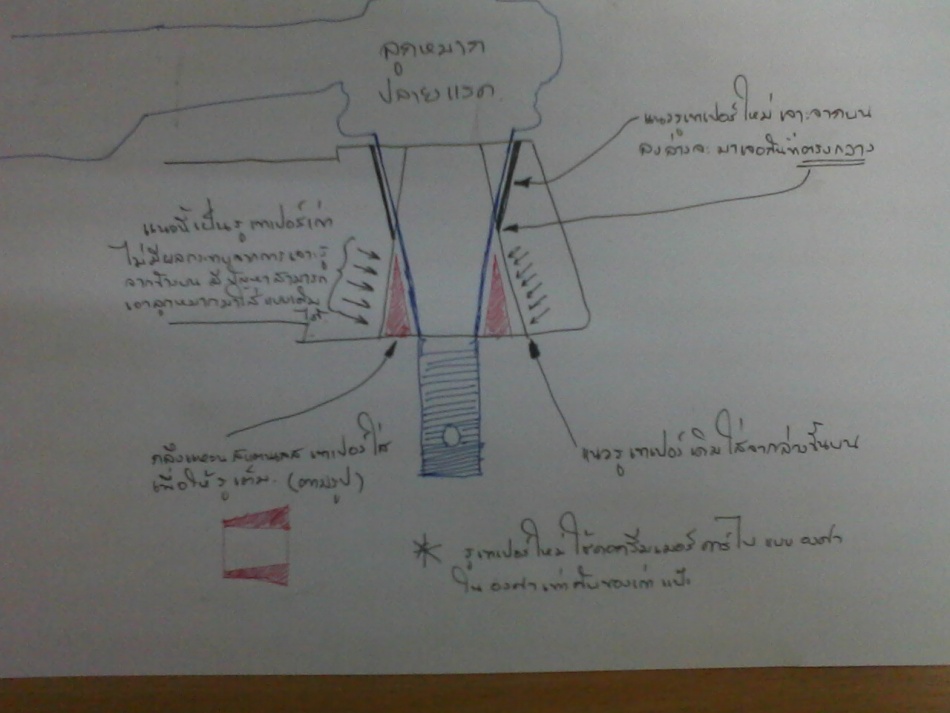 ลูกหมาก
ปลายแรค
แนวรูเทเปอร์ใหม่ เจาะจากบน
ลงล่างจะ มาเจอกันที่ตรงกลาง
แนวนี้เป็นรู เทเปอร์เก่า
ไม่มีผลกระทบจากการเจาะรู
จากข้างบน มีปัญหาสามารถ
เอาลูกหมากมาใส่ แบบเดิม
ได้
กลึงแหวน สแตนเลส เทเปอร์ใส่
เพื่อให้ รูเต็ม. (ตามรูป)
แนวรู เทเปอร์เดิม ใส่จากล่างขึ้นบน
* รูเทเปอร์ใหม่ ใช้ดอกรีมเมอร์ คาร์ไบ แบบ องศา
ใน องศา เท่ากับของเก่า แป๊ะ